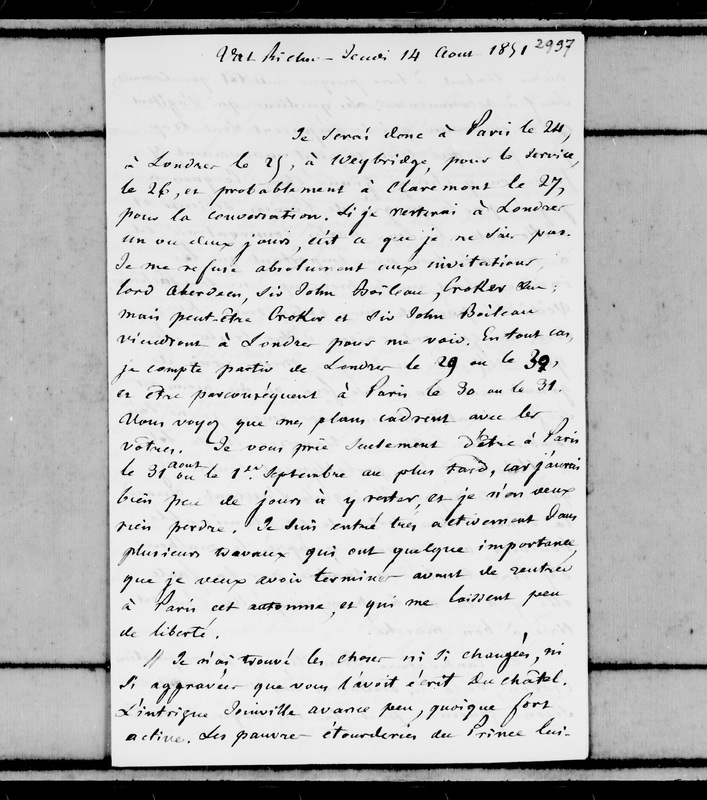 Val Richer - Jeudi 14 Aout 1851
2997
Je serai donc à Paris le 24,
à Londres le 25, à Weybridge, pour le service,
le 26, et probablement à Claremont le 27,
pour la conversation. Si je resterai à Londres
un ou deux jours, c'est ce que je ne sais pas.
Je me refuse absolument aux invitations,
lord Aberdeen, Sir John Boileau, Croker &a;
mais peut-être Croker et Sir John Boileau
viendront à Londres pour me voir. En tout cas,
je compte partir de Londres le 29 ou le 30,
et être par conséquent à Paris le 30 ou le 31.
Vous voyez que mes plans cadrent avec les
vôtres. Je vous prie seulement d'être à Paris
le 31 aout ou le 1er Septembre au plus tard, car j'aurai
bien peu de jours à y rester, et je n'en veux
rien perdre. Je suis entré très activement dans
plusieurs travaux qui ont quelque importance,
que je veux avoir terminés avant de rentrer
à Paris cet automne, et qui me laissent peu
de liberté.
// Je n'ai trouvé les choses ni si changées, ni
si aggravées que vous l'avoit écrit Duchâtel.
L'intrigue Joinville avance peu, quoique fort
active. Les pauvres étourderies du Prince lui-